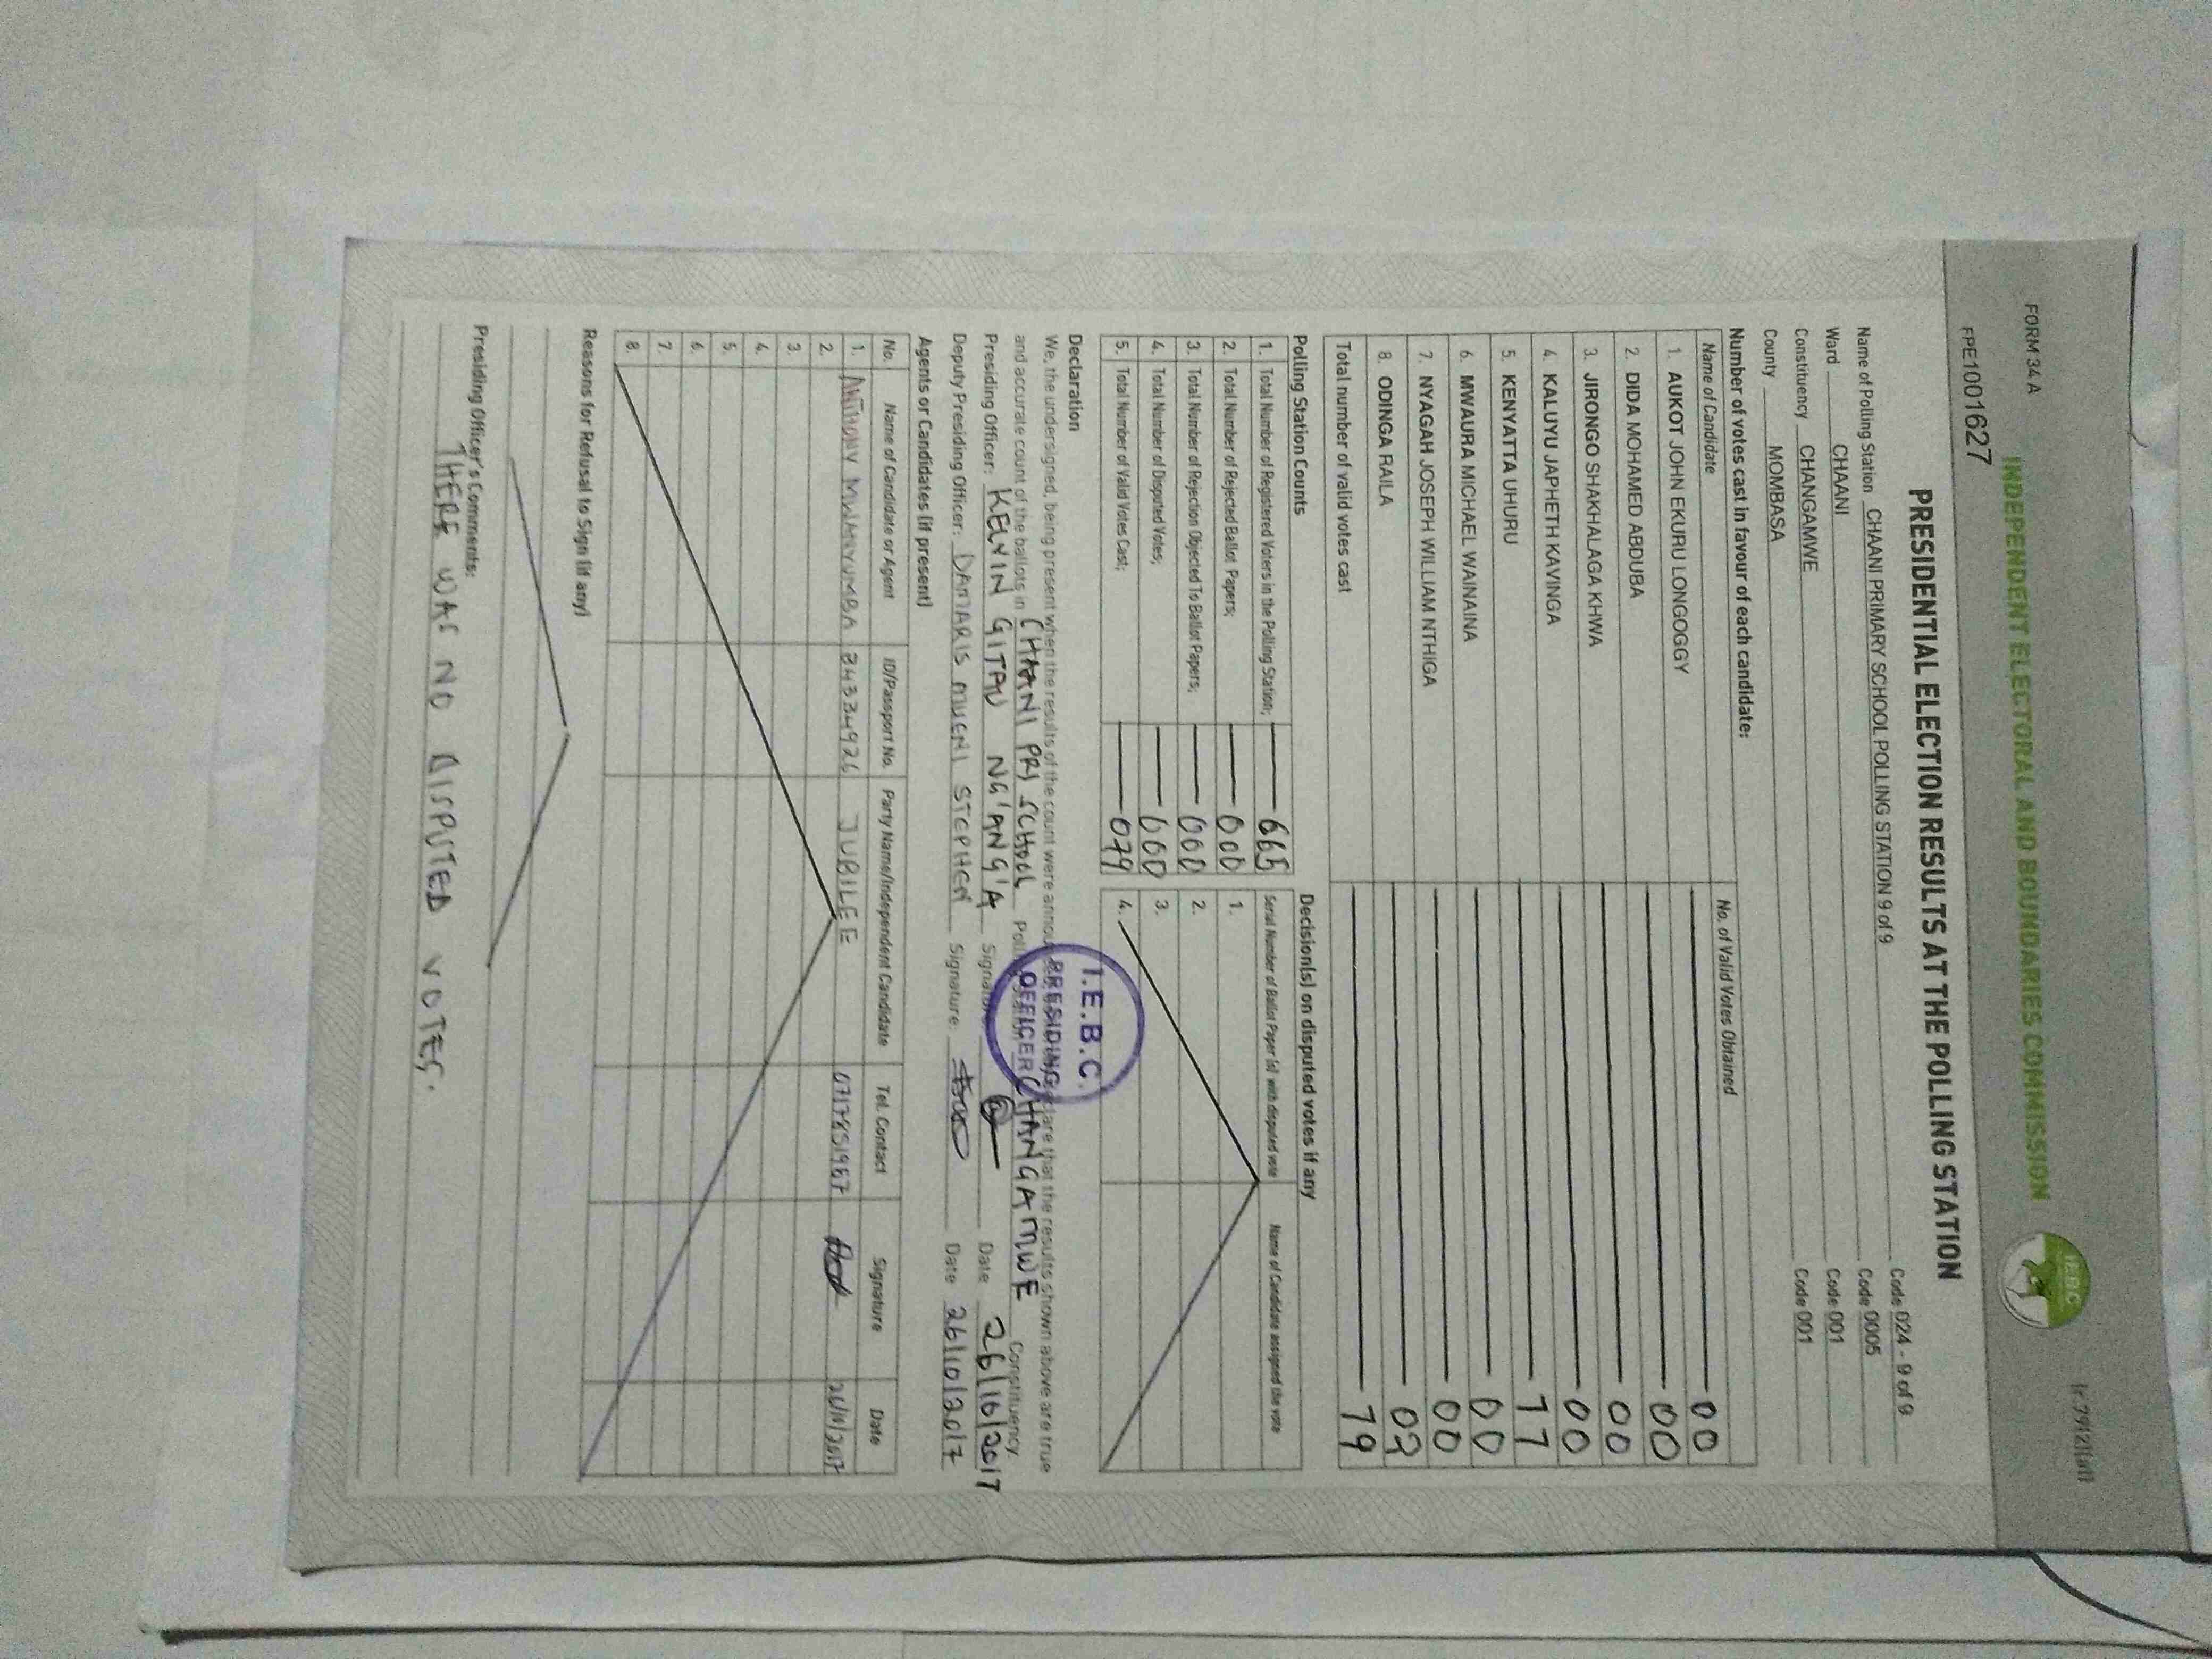 FORM 34 A
INDEPENDENT ELECTORAL AND BOUNDARIES COMMISSION
I.E.B.C
FPE1001627
PRESIDENTIAL ELECTION RESULTS AT THE POLLING STATION
Name of Polling Station CHAANI PRIMARY SCHOOL POLLING STATION 9 of 9 Code 024 - 9 of 9
Ward CHAANI Code 0005
Constituency CHANGAMWE Code 001
County MOMBASA Code 001
Number of votes cast in favour of each candidate:
Name of Candidate No. of Valid Votes Obtained
1. AUKOT JOHN EKURU LONGOGGY 00
2. DIDA MOHAMED ABDUBA 00
3. JIRONGO SHAKHALAGA KHWA 00
4. KALUYU JAPHETH KAVINGA 00
5. KENYATTA UHURU 77
6. MWAURA MICHAEL WAINAINA 00
7. NYAGAH JOSEPH WILLIAM NTHIGA 00
8. ODINGA RAILA 02
Total number of valid votes cast 79
Polling Station Counts
1. Total Number of Registered Voters in the Polling Station; 665
2. Total Number of Rejected Ballot Papers; 000
3. Total Number of Rejection Objected To Ballot Papers; 000
4. Total Number of Disputed Votes; 000
5. Total Number of Valid Votes Cast; 079
Decision(s) on disputed votes if any
Serial Number of Ballot Paper (s) with disputed vote Name of Candidate assigned the vote
1.
2.
3.
4.
Declaration
We, the undersigned, being present when the results of the count were declare that the results shown above are true
and accurate count of the ballots in CHAANI PRI SCHOOL CHANGAMWE Constituency.
I.E.B.C.
PRESIDING
OFFICER
Presiding Officer: KELVIN GITAU NG'ANG'A Signature Date 26/10/2017
Deputy Presiding Officer: DAMARIS MUENI STEPHEN Signature Date 26/10/2017
Agents or Candidates (if present)
No. Name of Candidate or Agent ID/Passport No. Party Name/Independent Candidate Tel. Contact Signature Date
1. ANTHONY MWANYUMBA 24334926 JUBILEE 0717851967 26/10/2017
2.
3.
4.
5.
6.
7.
8.
Reasons for Refusal to Sign (if any)
Presiding Officer's Comments:
THERE WAS NO DISPUTED VOTES.